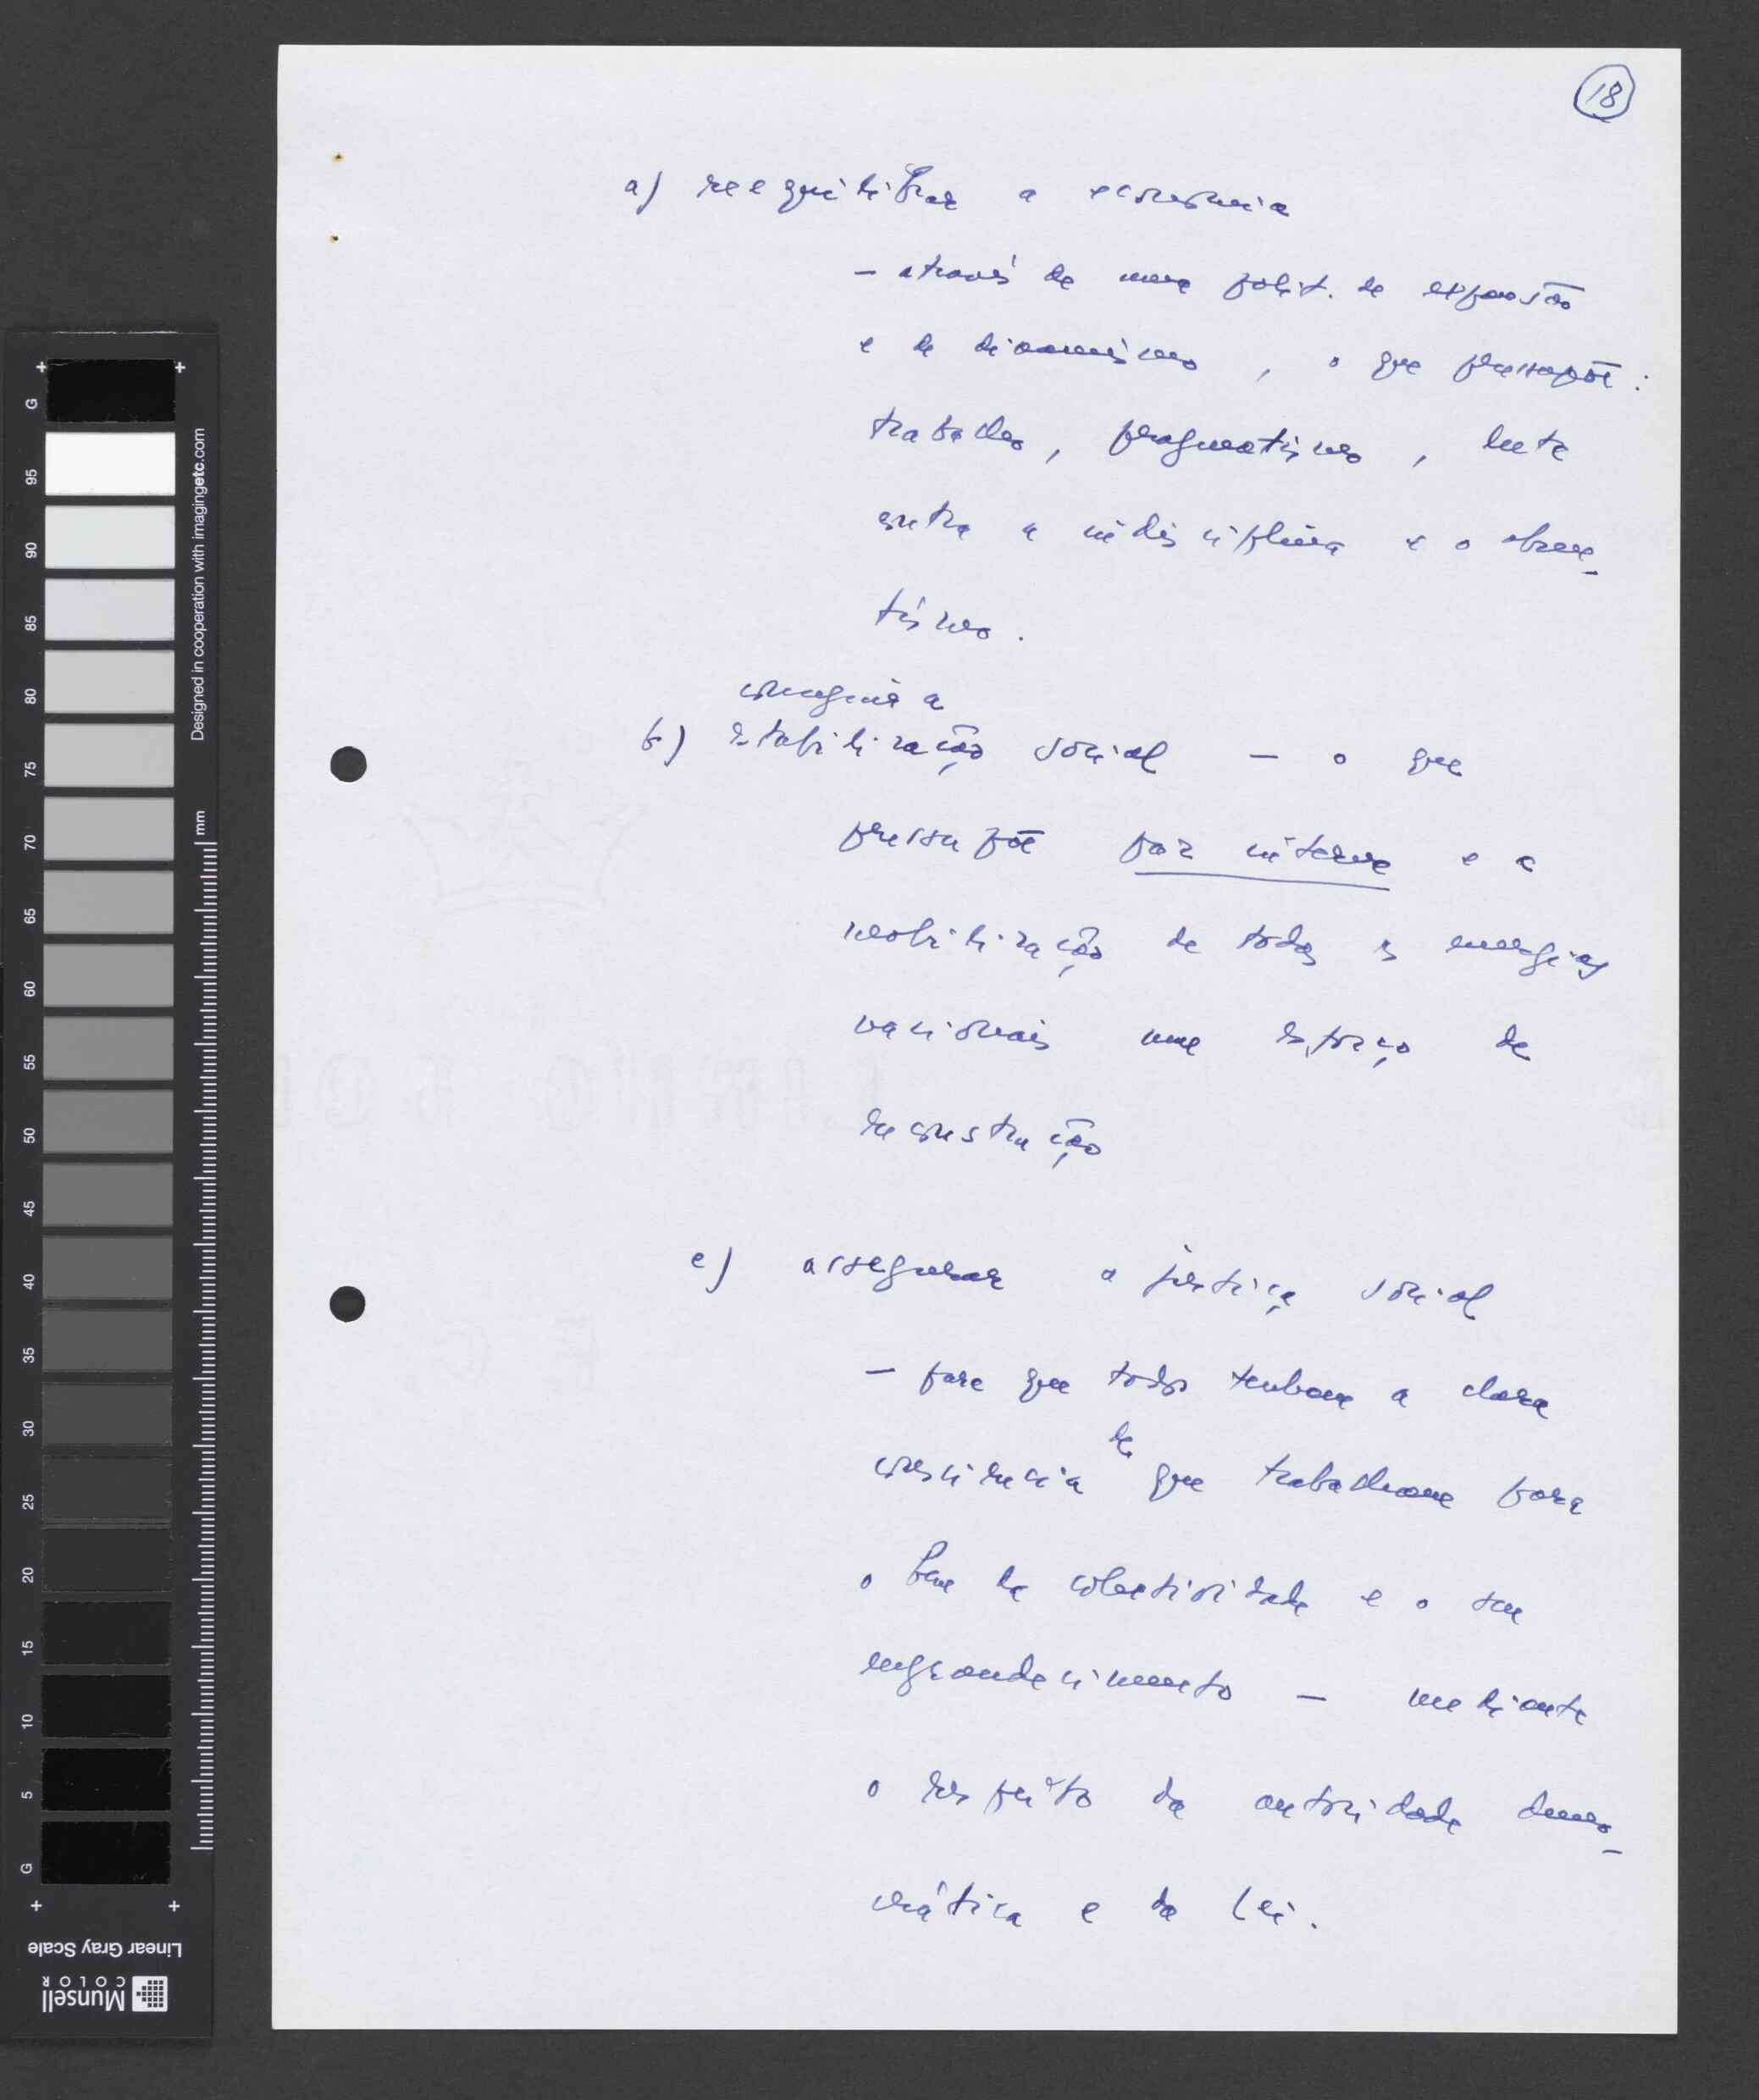 18
a) reequilibrar a economia
- através de uma polit. de expansão
e de dinamismo, o que pressupõe:
trabalho, pragmatismo, luta
contra a indisciplina e o absen-
tismo.
conseguir a
b) estabilização social - o que
pressupõe paz interna e a
mobilização de todas as energias
nacionais num esforço de
reconstrução
c) assegurar a justiça social
- para que todos tenham a clara
de
consciência que trabalham para
o bem da colectividade e o seu
engrandecimento - mediante
o respeito da autoridade demo-
crática e da lei.
G
95
90
85
80
75
70
65
60
55
50
45
40
35
30
25
20
15
10
5
G
Designed in cooperation with imagingetc.com
mm
Linear Gray Scale
Munsell
COLOR